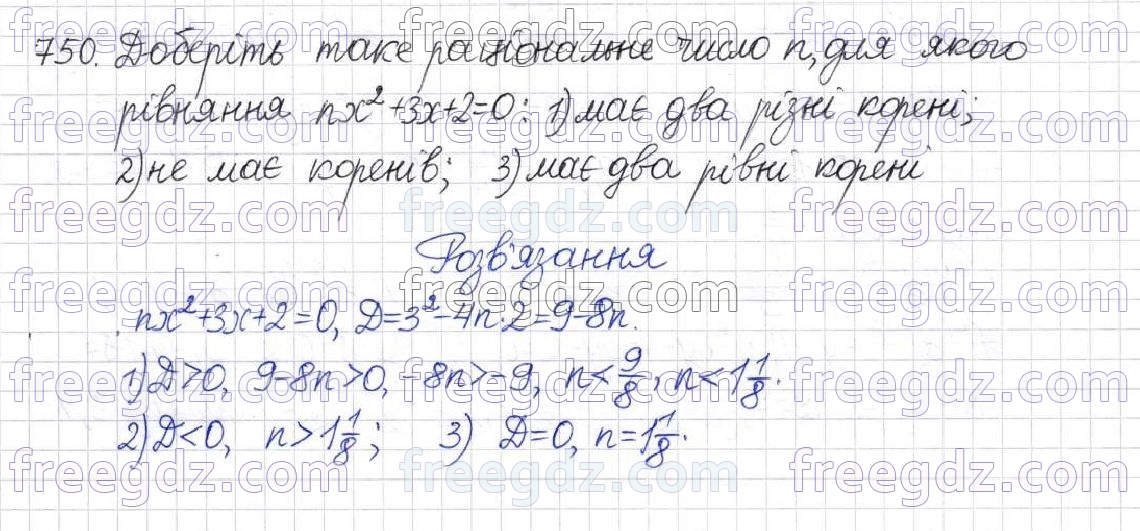 750. Доберіть таке раціональне число n, для якого
рівняння nx²+3x+2=0: 1) має два різні корені;
2) не має коренів; 3) має два рівні корені
Розв'язання
nx²+3x+2=0, D=3²-4n·2=9-8n.
1) D>0, 9-8n>0, -8n>-9, n<9/8, n<1 1/8.
2) D<0, n>1 1/8; 3) D=0, n=1 1/8.
freegdz.com freegdz.com freegdz.com
freegdz.com freegdz.com freegdz.com
freegdz.com freegdz.com freegdz.com
freegdz.com freegdz.com freegdz.com
freegdz.com freegdz.com freegdz.com
freegdz.com freegdz.com freegdz.com